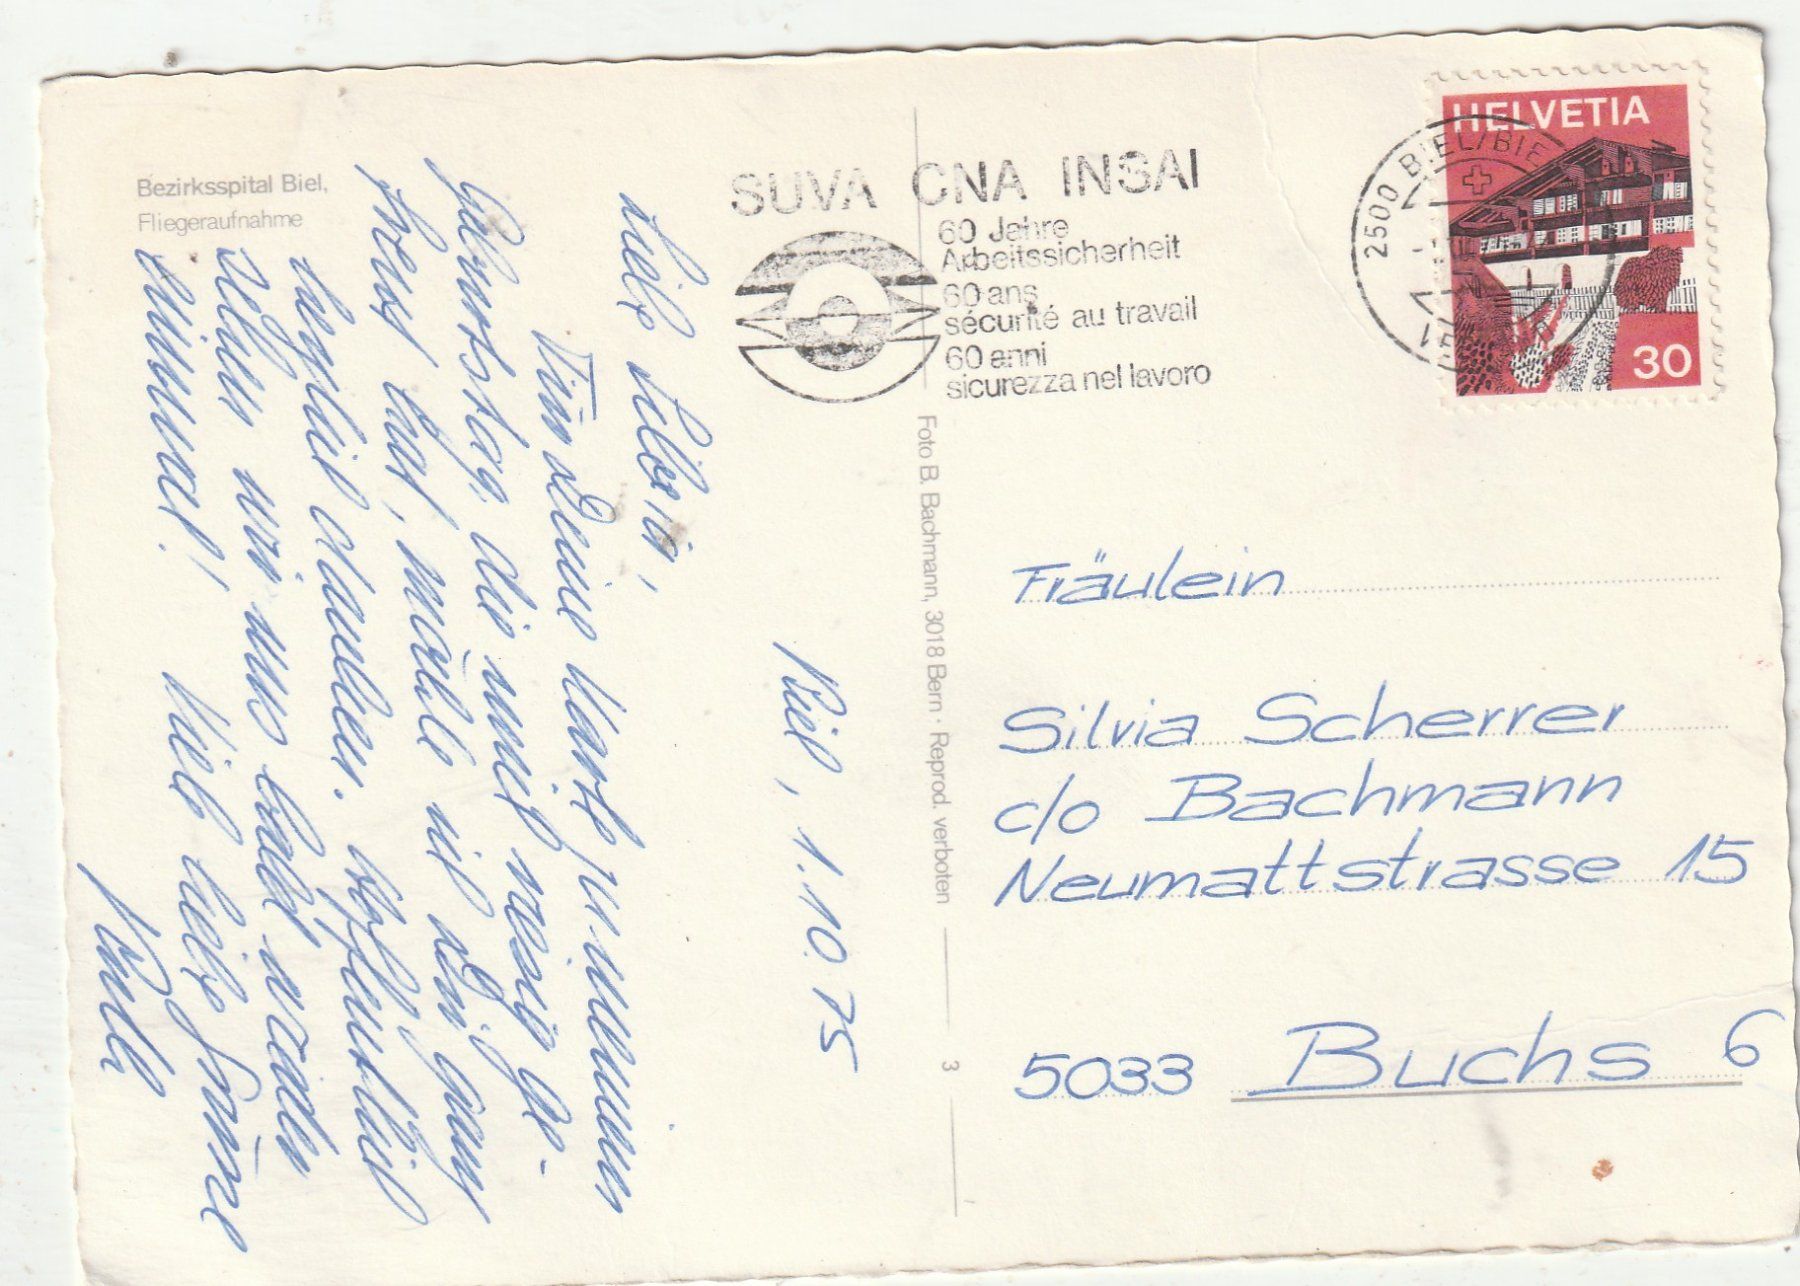 Bezirksspital Biel,
Fliegeraufnahme
SUVA CNA INSAI
60 Jahre
Arbeitssicherheit
60 ans
sécurité au travail
60 anni
sicurezza nel lavoro
HELVETIA
30
2500 BIEL/BIE
Foto B. Bachmann, 3018 Bern · Reprod. verboten
3
Biel, 1.10.75
Liebe Silvia,
Für Deine Karte zu meinem
Geburtstag, die mich riesig ge-
freut hat, möchte ich Dir ganz
herzlich danken. Hoffentlich
sehen wir uns bald wieder
einmal! Viele liebe Grüsse
Fräulein
Silvia Scherrer
c/o Bachmann
Neumattstrasse 15
5033 Buchs 6